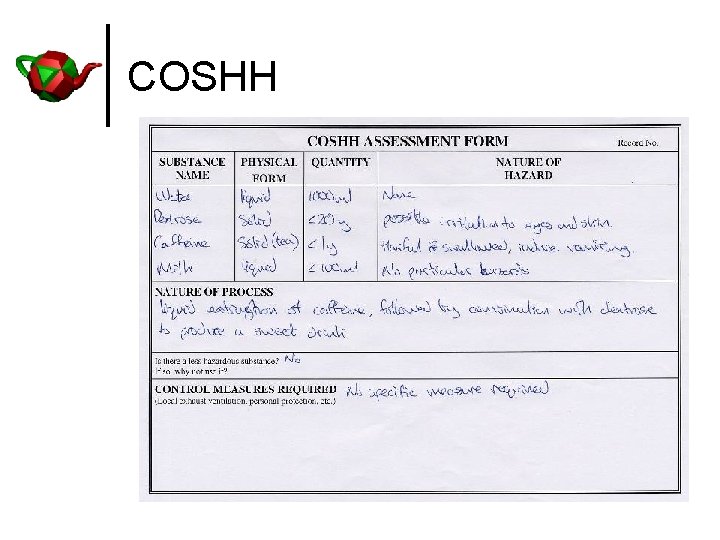 COSHH
COSHH ASSESSMENT FORM Record No.
SUBSTANCE NAME PHYSICAL FORM QUANTITY NATURE OF HAZARD
Water liquid 1000ml None
Dextrose Solid ≤ 20g possible irritation to eyes and skin
Caffeine Solid (tea) < 1g Harmful if swallowed, induce vomiting.
Milk liquid ≤ 100ml No particular hazards
NATURE OF PROCESS
liquid extraction of caffeine, followed by combination with dextrose
to produce a sweet drink
Is there a less hazardous substance? No
If so, why not use it?
CONTROL MEASURES REQUIRED No specific measure required
(Local exhaust ventilation, personal protection, etc.)